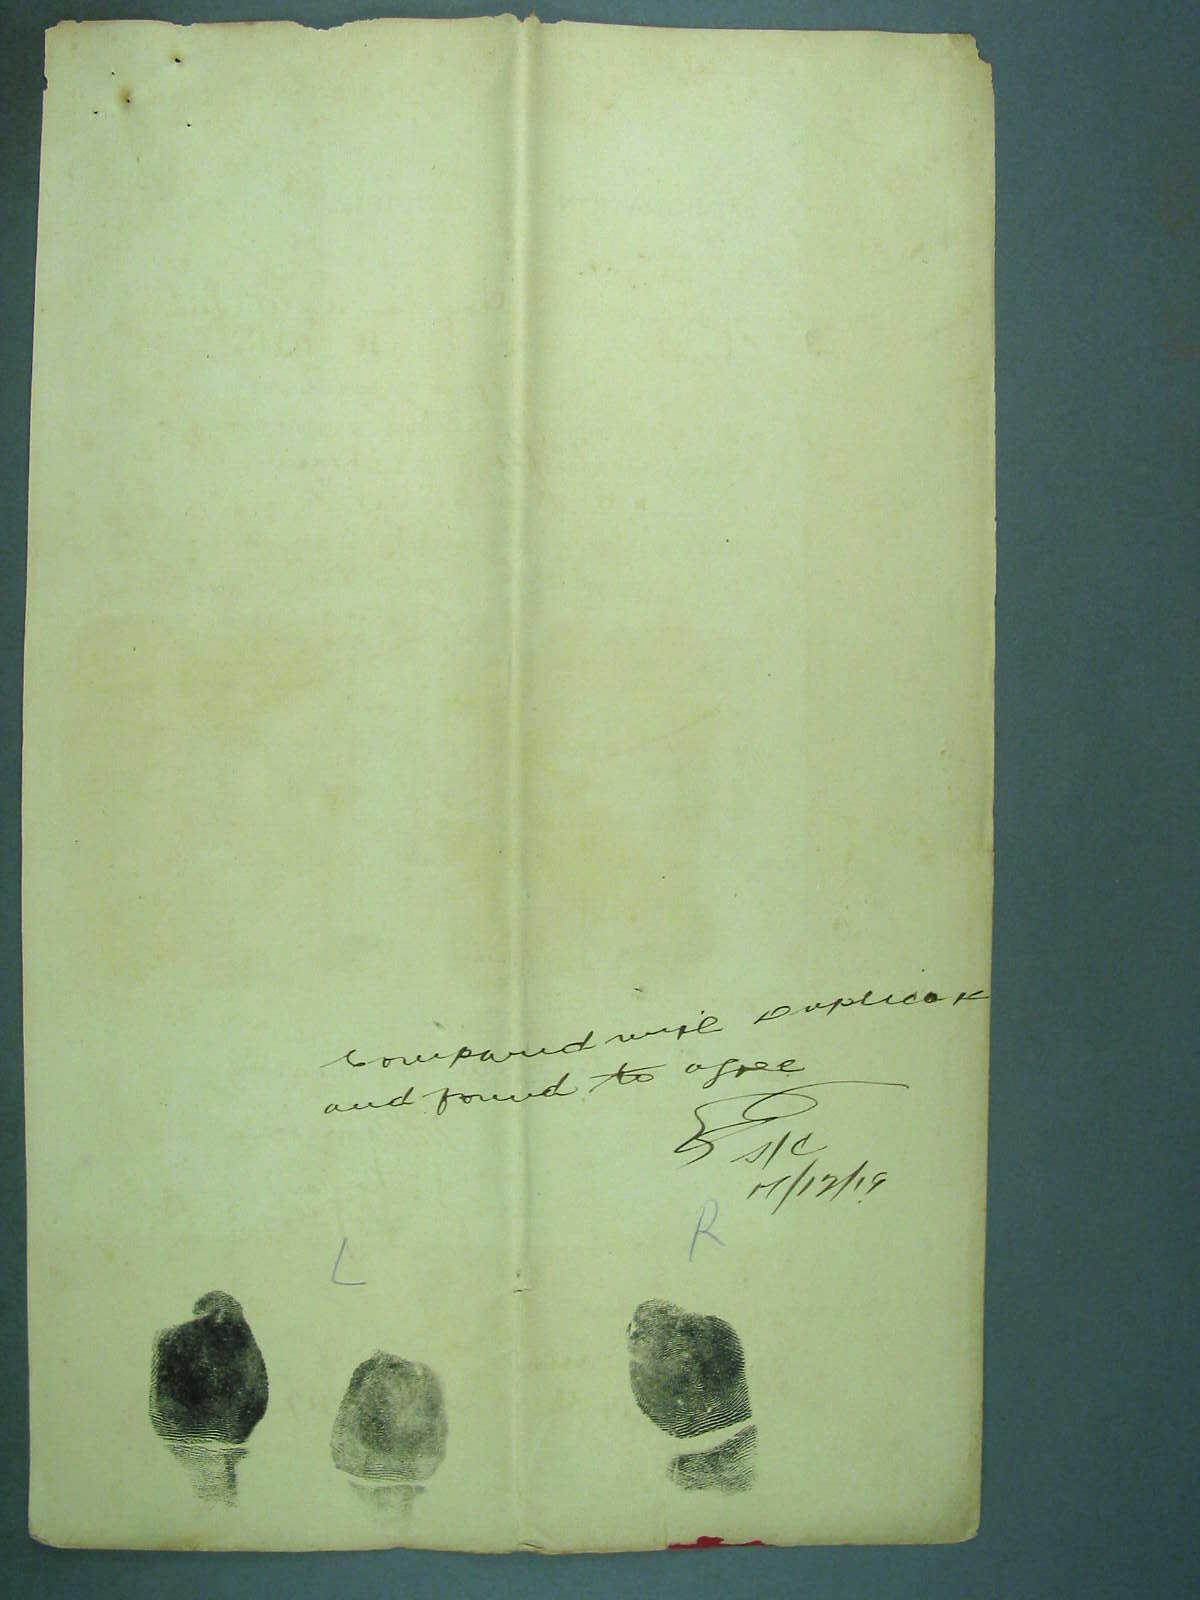 Compared with duplicate
and found to agree
S/C
17/12/19
L
R